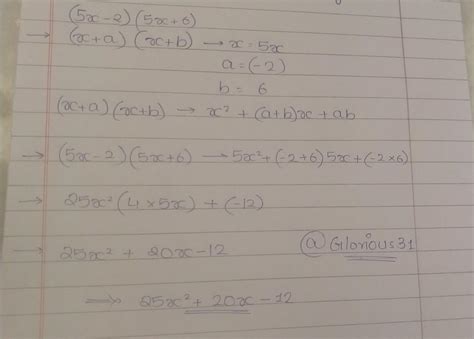 (5x-2)(5x+6)
→ (x+a)(x+b) → x = 5x
a = (-2)
b = 6
(x+a)(x+b) → x² + (a+b)x + ab
→ (5x-2)(5x+6) → 5x² + (-2+6)5x + (-2×6)
→ 25x² (4×5x) + (-12)
→ 25x² + 20x - 12
@Glorious31
→ 25x² + 20x - 12